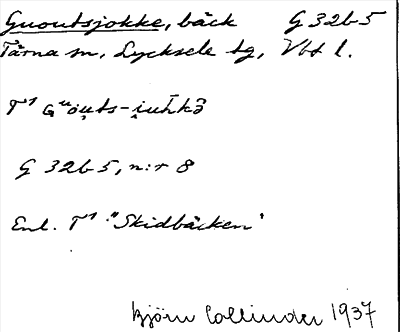 Guoutsjokke, bäck G 32b5
Tärna sn, Lycksele tg, Vbt l.
T¹
G 32b5, n:r 8
Enl. T¹ "Skidbäcken"
Björn Collinder 1937